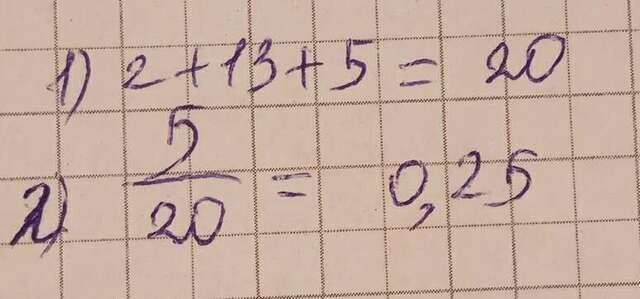 1) 2+13+5= 20
2) 5/20 = 0,25